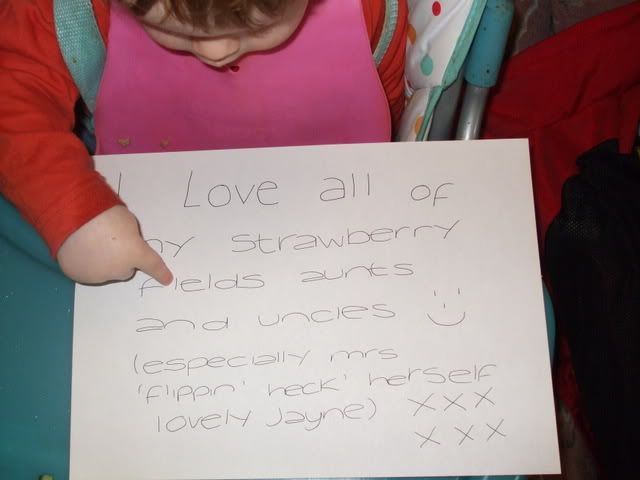 I Love all of
my strawberry
fields aunts
and uncles :)
(especially mrs
'flippin' heck' herself
lovely Jayne) xxx
xxx